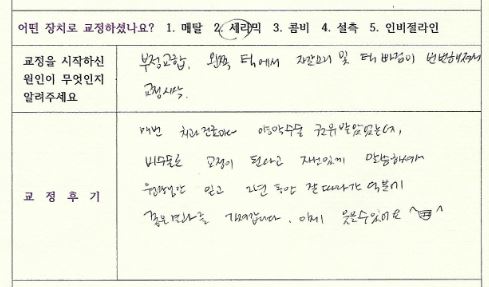 어떤 장치로 교정하셨나요? 1. 메탈 2. 세라믹 3. 콤비 4. 설측 5. 인비절라인
교정을 시작하신
원인이 무엇인지
알려주세요
부정교합. 왼쪽 턱에서 자갈소리 및 턱 빠짐이 빈번해져서
교정시작.
교 정 후 기
매번 치과 진료마다 양악수술 권유받았었는데,
비수술로 교정이 된다고 자신있게 말씀하셔서
원장님만 믿고 2년 동안 잘 따라가 덕분에
좋은 변화를 가져갑니다. 이제 웃을수있어요